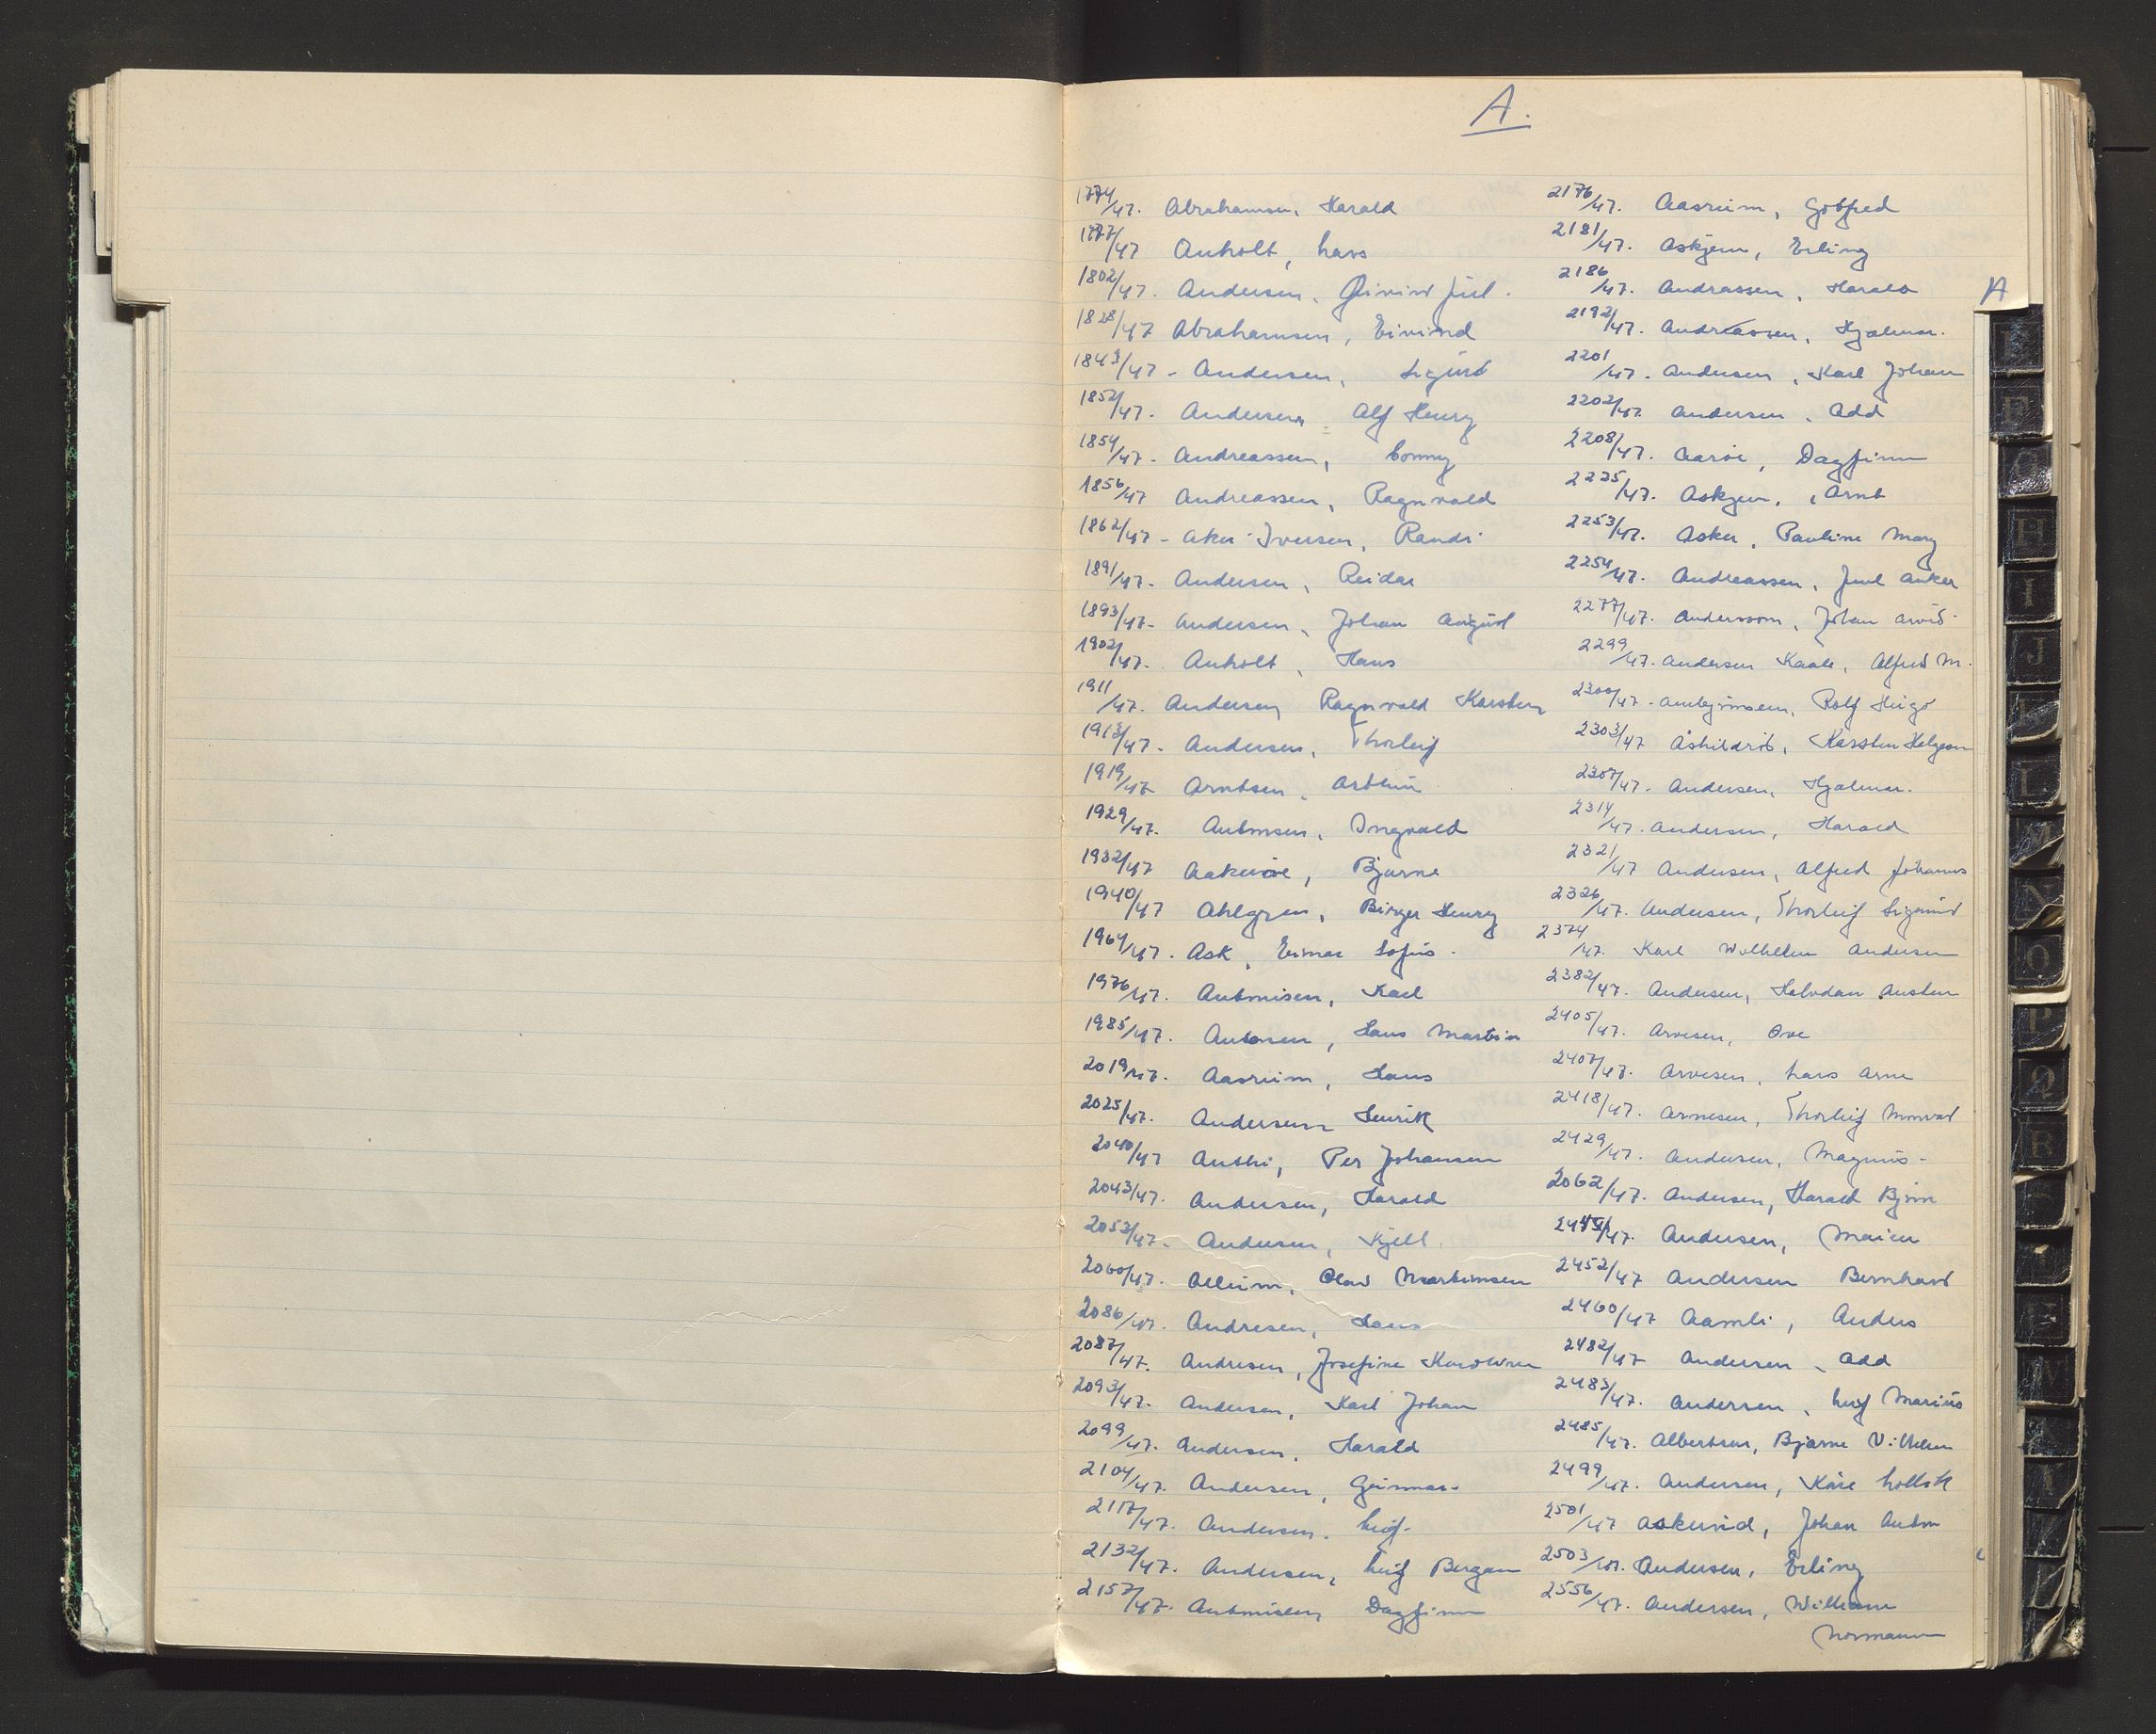 A.
1774/47. Abrahamsen, Harald
1777/47 Anholt, Lars
1802/47. Andersen, Øivind Juel.
1828/47 Abrahamsen, Eivind
1843/47 - Andersen, Sigurd
1852/47. Andersen, Alf Henry
1854/47. Andreassen, Conny
1856/47 Andreassen, Ragnvald
1862/47 - Aker-Iversen, Randi
1891/47. Andersen, Reidar
1893/47. Andersen, Johan August
1902/47. Anholt, Hans
1911/47. Andersen, Ragnvald Karsten
1913/47. Andersen, Thorleif
1919/47 Arntsen, Arthur
1929/47. Antonsen, Ingvald
1932/47 Aakerøe, Bjarne
1940/47 Ahlgren, Birger Henry
1964/47. Ask, Einar Sofus.
1976/47. Antonisen, Karl
1985/47. Antonsen, Hans Martin
2019/47. Aasrum, Hans
2025/47. Andersen Henrik
2040/47 Anthi, Per Johansen
2043/47. Andersen, Harald
2053/47. Andersen, Kjell
2060/47. Alleim, Olav Martinsen
2086/47. Andresen, Hans
2087/47. Andresen, Josefine Karoline
2093/47. Andersen, Karl Johan
2099/47. Andersen, Harald
2104/47. Andersen, Gunnar.
2117/47. Andersen, Leif.
2132/47. Andersen, Leif Bergan
2157/47. Antonisen, Dagfinn
2176/47. Aasrum, Gotfred
2181/47. Askjem, Erling
2186/47. Andrassen, Harald
2192/47. Andreassen, Hjalmar.
2201/47. Andersen, Karl Johan
2202/47. Andersen, Odd
2208/47. Aarøe, Dagfinn
2225/47. Askjem, Arnt
2253/47. Asker, Pauline Mary
2254/47. Andreassen, Juul Anker
2277/47. Andersson, Johan Arvid
2299/47. Andersen Kaale, Alfred M.
2300/47. Rolf Hugo
2303/47 Åshildrød, Karsten Helgesen
2307/47. Andersen, Hjalmar.
2314/47. Andersen, Harald
2321/47 Andersen, Alfred Johannes
2326/47. Andersen, Thorleif Sigmund
2374/47. Karl Wilhelm Andersen
2382/47. Andersen, Halvdan Austen
2405/47. Arvesen, Ove
2407/47. Arvesen, Lars Arne
2418/47. Arnesen, Thorleif Monrad
2429/47. Andersen, Magnus.
2062/47. Andersen, Harald Bjørn
/47. Andersen, Maien
2452/47 Andersen Bernhard
2460/47 Aamli, Anders
2482/47 Andersen, Odd
2483/47. Andersen, Leif Marius
2485/47. Albertsen, Bjarne Vilhelm
2499/47. Andersen, Kåre
2501/47 Askerød, Johan Anton
2503/47. Andersen, Erling
2556/47. Andersen, William
Normann
A
H
I
J
L
M
N
O
P
Q
R